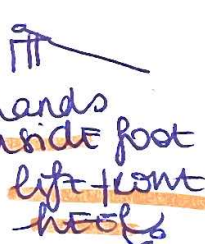 hands
side foot
lift front
heels